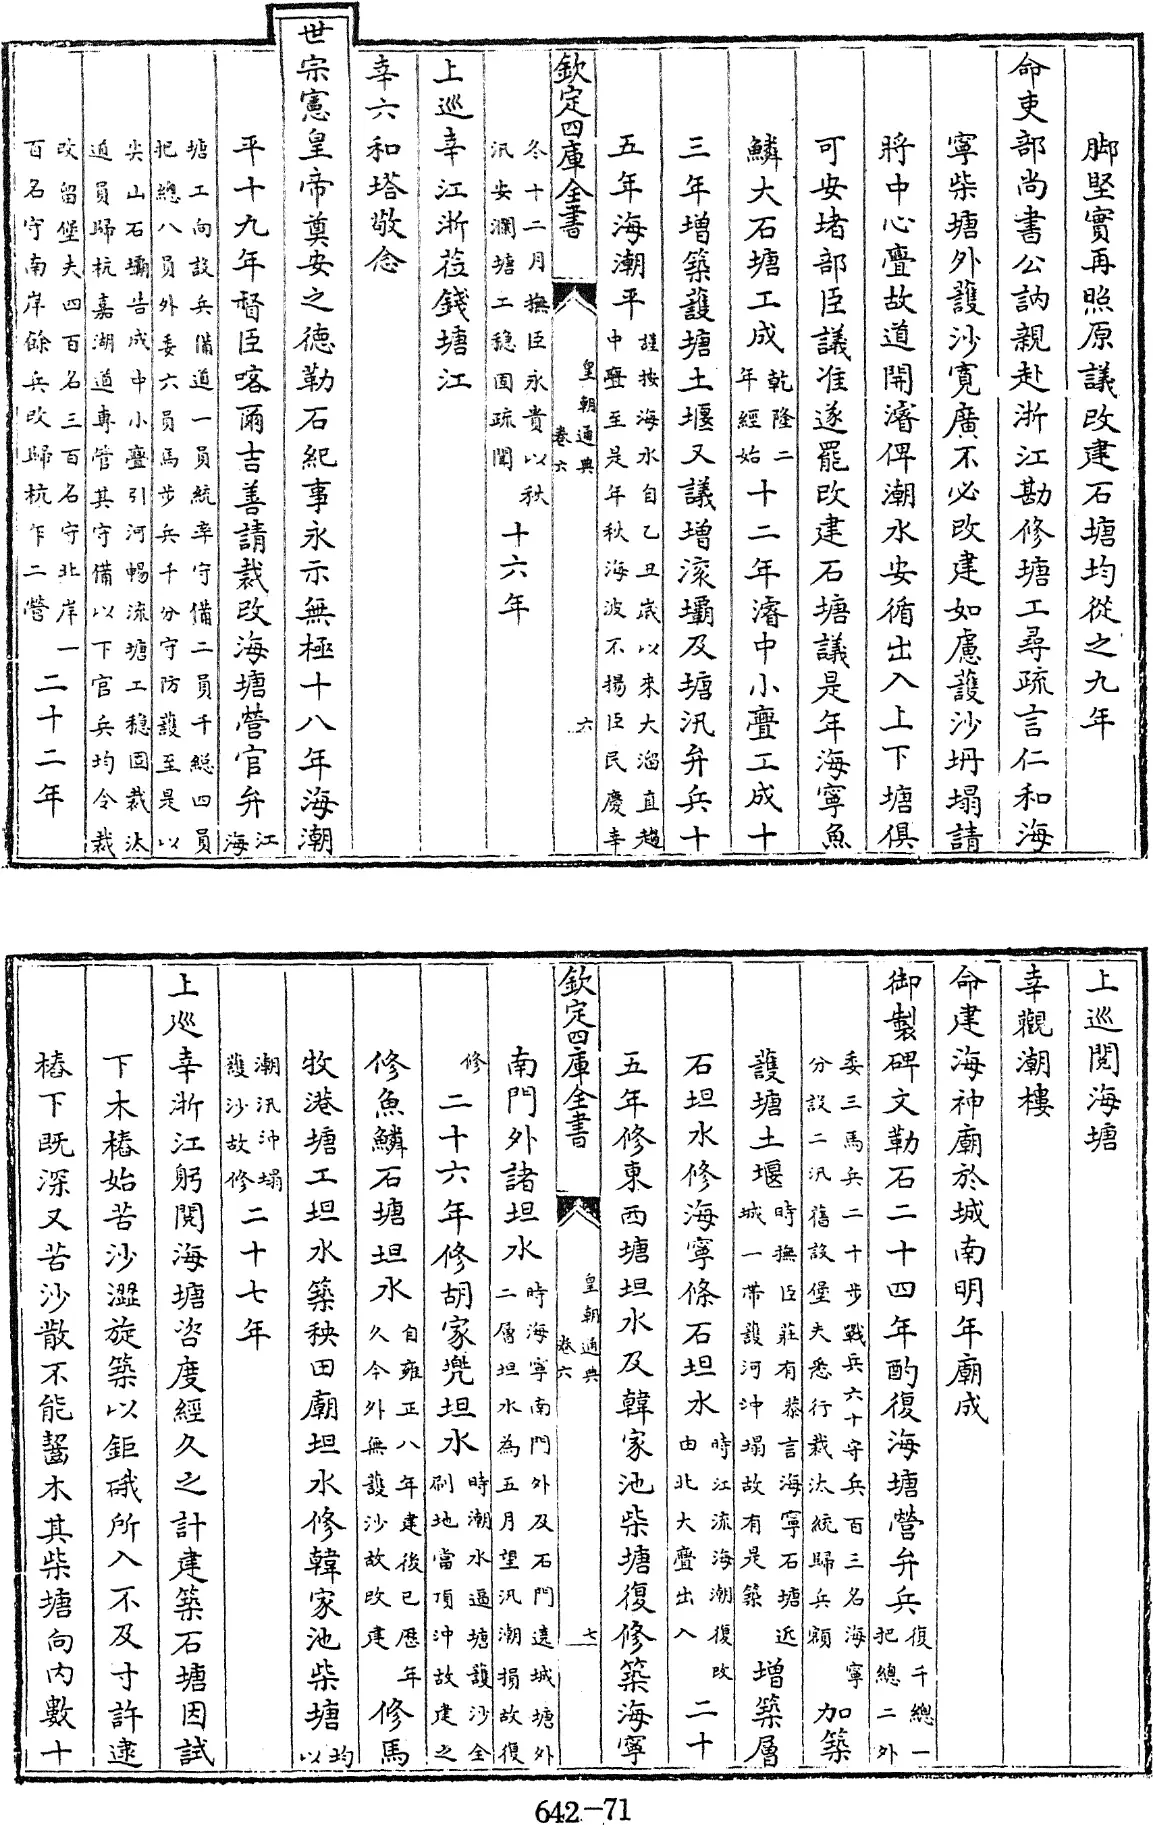 腳堅實再照原議改建石塘均從之九年
命吏部尚書公訥親赴浙江勘修塘工尋疏言仁和海
寧柴塘外護沙寬廣不必改建如慮護沙坍塌請
將中心亹故道開濬俾潮水安循出入上下塘俱
可安堵部臣議准遂罷改建石塘議是年海寧魚
鱗大石塘工成乾隆二年經始十二年濬中小亹工成十
三年增築護塘土堰又議增滚壩及塘汛弁兵十
五年海潮平謹按海水自乙丑歲以来大溜直趨中亹至是年秋海波不揚臣民慶幸
欽定四庫全書
皇朝通典
卷六
六
冬十二月撫臣永貴以秋汛安瀾塘工穩固疏聞十六年
上巡幸江浙莅錢塘江
幸六和塔敬念
世宗憲皇帝奠安之德勒石紀事永示無極十八年海潮
平十九年督臣喀爾吉善請裁改海塘營官弁江海
塘工向設兵備道一員統率守備二員千總四員把總八員外委六員馬步兵千分守防護至是以
尖山石壩告成中小亹引河暢流塘工穩固裁汰道員歸杭嘉湖道專管其守備以下官兵均令裁
改留堡夫四百名三百名守北岸一百名守南岸餘兵改歸杭乍二營二十二年
上巡閱海塘
幸觀潮樓
命建海神廟於城南明年廟成
御製碑文勒石二十四年酌復海塘營弁兵復千總一把總二外
委三馬兵二十步戰兵六十守兵百三名海寧分設二汛舊設堡夫悉行裁汰統歸兵額加築
護塘土堰時撫臣莊有恭言海寧石塘近城一帶護河沖塌故有是築增築層
石坦水修海寧條石坦水時江流海潮復改由北大亹出入二十
五年修東西塘坦水及韓家池柴塘復修築海寧
欽定四庫全書
皇朝通典
卷六
七
南門外諸坦水時海寧南門外及石門遶城塘外二層坦水為五月望汛潮損故復
修二十六年修胡家兜坦水時潮水逼塘護沙全刷地當頂沖故建之
修魚鱗石塘坦水自雍正八年建後已歷年久今外無護沙故改建修馬
牧港塘工坦水築秧田廟坦水修韓家池柴塘均以
潮汛沖塌護沙故修二十七年
上巡幸浙江躬閱海塘咨度經久之計建築石塘因試
下木樁始苦沙澀旋築以鉅硪所入不及寸許逮
樁下既深又苦沙散不能齧木其柴塘向内數十
642-71